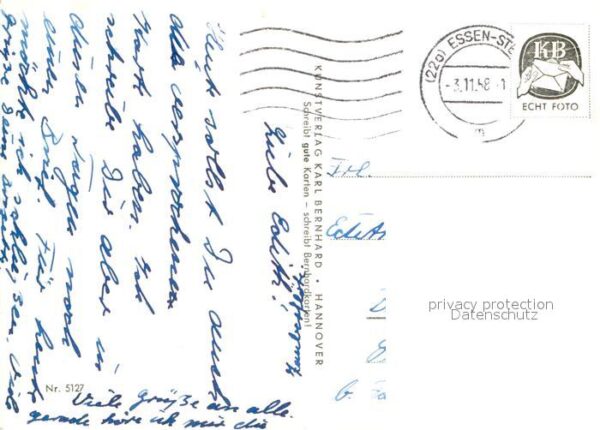 (22a) ESSEN-STE
-3.11.58-1
m
KB
ECHT FOTO
KUNSTVERLAG KARL BERNHARD • HANNOVER
Schreibt gute Karten – schreibt Bernhardkarten!
Frl.
Edith
privacy protection
Datenschutz
Liebe Edith!
Heut sollst Du auch
die versprochene
Karte haben. Ich
schreibe Dir aber in
diesen Tagen noch
einen Brief. Für heute
möchte ich schließen. Viele
Grüße
Viele Grüße an alle.
gerade höre ich mir die
Nr. 5127